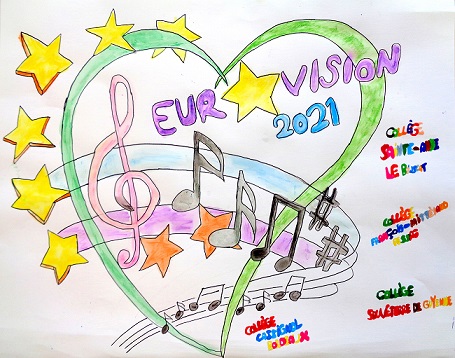 EUR VISION
2021
COLLÈGE
SAINTE-ANNE
LE
COLLÈGE
FRANÇOIS-MITTERRAND
COLLÈGE
SAUVETERRE DE GUYENNE
COLLÈGE
CASSIGNEL
BORDEAUX